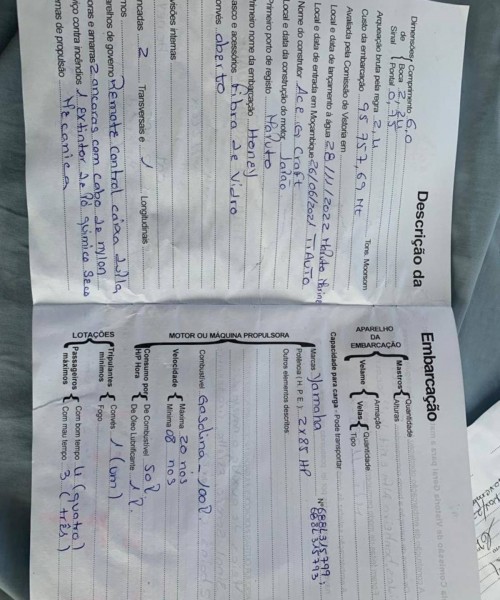 Descrição da
Dimensões de Sinal
Comprimento 6,0
Boca 2,24
Pontal 0,95
Arqueação bruta pela regra 2,4 Tons. Moorsom
Custo da embarcação 95 757,69 Mt
Avaliada pela Comissão de Vistoria em
Local e data de lançamento à água 28/11/2022 Maputo
Local e data de entrada em Moçambique 26/06/2021
Nome do construtor Ace Craft
Local e data da construção do motor Japão
Primeiro porto de registo Maputo
rimeiro nome da embarcação Honey
asco e acessórios Fibra de Vidro
onvés aberto
visões internas
ncadas 2 Transversais e 1 Longitudinais
mos
arelhos de governo Remote Control
oras e amarras 2 ancoras com cabo de nylon
iço contra incêndios 1 extintor de Pó quimico seco
emas de propulsão Mecanica
Embarcação
APARELHO DA EMBARCAÇÃO
Mastros
Quantidade
Alturas
Velame
Armação
Velas
Quantidade
Tipo
Capacidade para carga - Pode transportar
MOTOR OU MÁQUINA PROPULSORA
Marcas Yamaha Nº 688L315799;
688L315793
Potência (H.P.E.) 2 x 85 HP
Outros elementos descritos
Combustível Gasolina - 100l.
Velocidade
Máxima 20 nos
Mínima 08 nos
Consumo por H/P Hora
De Combustível 50l
De Óleo Lubrificante 1l.
LOTAÇÕES
Tripulantes mínimos
Convés 1 (um)
Fogo
Passageiros máximos
Com bom tempo 4 (quatro)
Com mau tempo 3 (três)